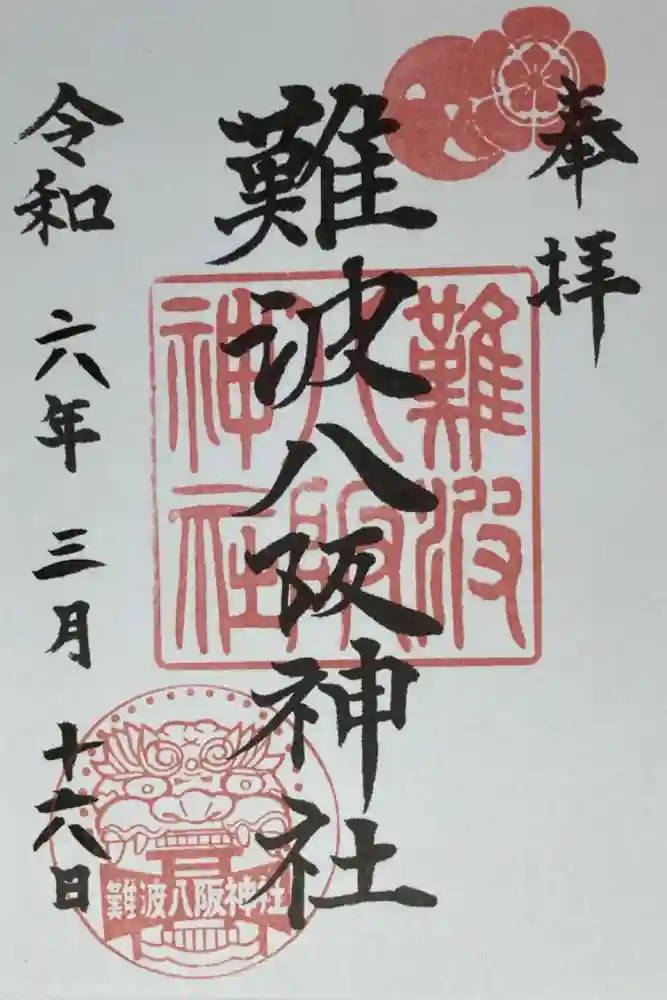 奉拝
難波八阪神社
難波八阪神社
令和 六年 三月 十六日
難波八阪神社